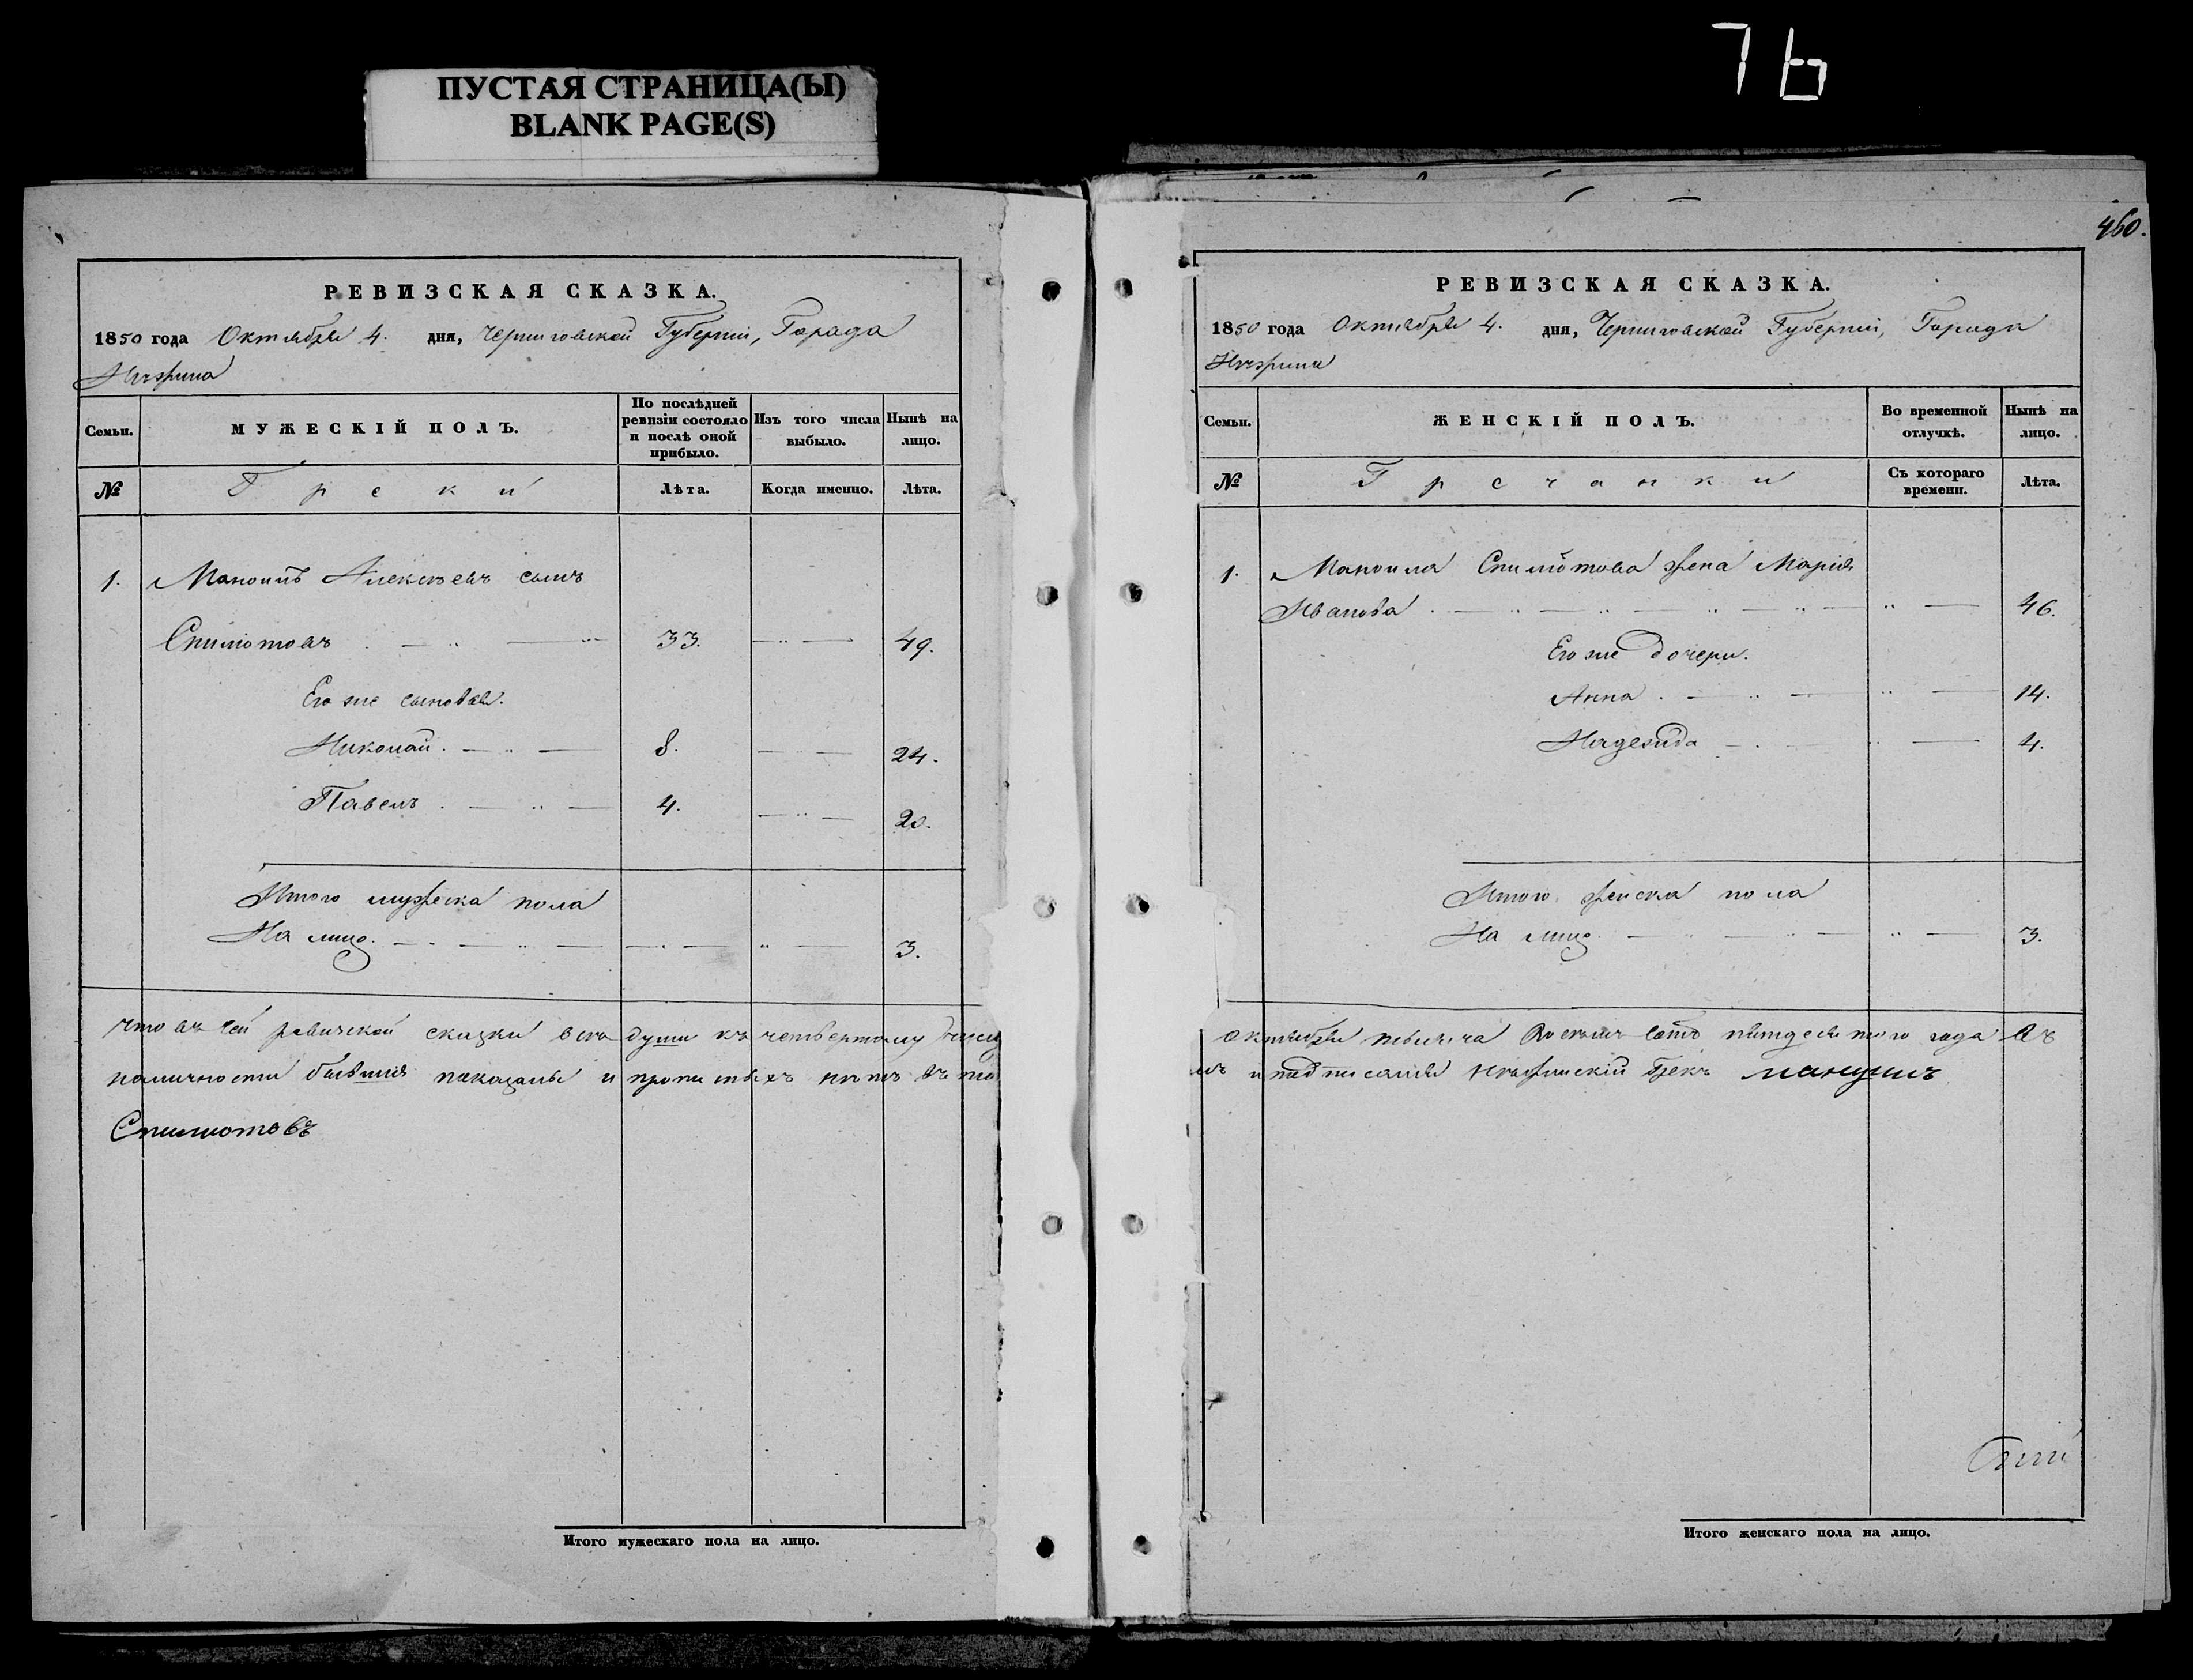 ПУСТАЯ СТРАНИЦА(Ы)
BLANK PAGE(S)
7Б
РЕВИЗСКАЯ СКАЗКА.
1850 года Октября 4. дня, Черниговской Губерніи, Города
Нѣжина
Семьи. МУЖЕСКІЙ ПОЛЪ. По послѣдней ревизіи состояло и послѣ оной прибыло. Изъ того числа выбыло. Нынѣ на лицо.
№ Греки Лѣта. Когда именно. Лѣта.
1. Маноилъ Алексѣевъ сынъ
Спилιотовъ 33. 49.
Его же сыновья.
Николай. 8. 24.
Павелъ. 4. 20.
Итого мужеска пола
На лицо. 3.
Что въ сей ревизской сказки всѣ души къ четвертому числу
наличности бывшія показаны и прописныхъ нѣтъ въ то
Спилиотовъ
Итого мужескаго пола на лицо.
460.
РЕВИЗСКАЯ СКАЗКА.
1850 года Октября 4. дня, Черниговской Губерніи, Города
Нѣжина
Семьи. ЖЕНСКІЙ ПОЛЪ. Во временной отлучкѣ. Нынѣ на лицо.
№ Гречанки Съ котораго времени. Лѣта.
1. Маноила Спиліотова жена Марія
Иванова 46.
Его же дочери.
Анна 14.
Надежда 4.
Итого женска пола
На лицо 3.
октября тысяча восемь сотъ пятдесятого года въ
мъ и подписался нѣжинскій Грекъ мануилъ
Итого женскаго пола на лицо.